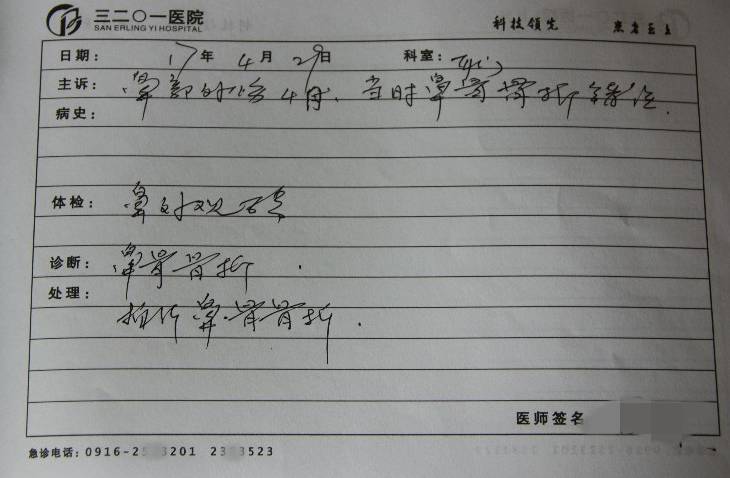 三二〇一医院
SAN ERLING YI HOSPITAL
科技领先 患者至上
日期: 17年 4月 29日 科室:
主诉: 鼻部外伤4月、当时鼻骨骨折错位.
病史:
体检: 鼻外观
诊断: 鼻骨骨折.
处理:
鼻骨骨折.
医师签名
急诊电话: 0916-2 3201 2 3523